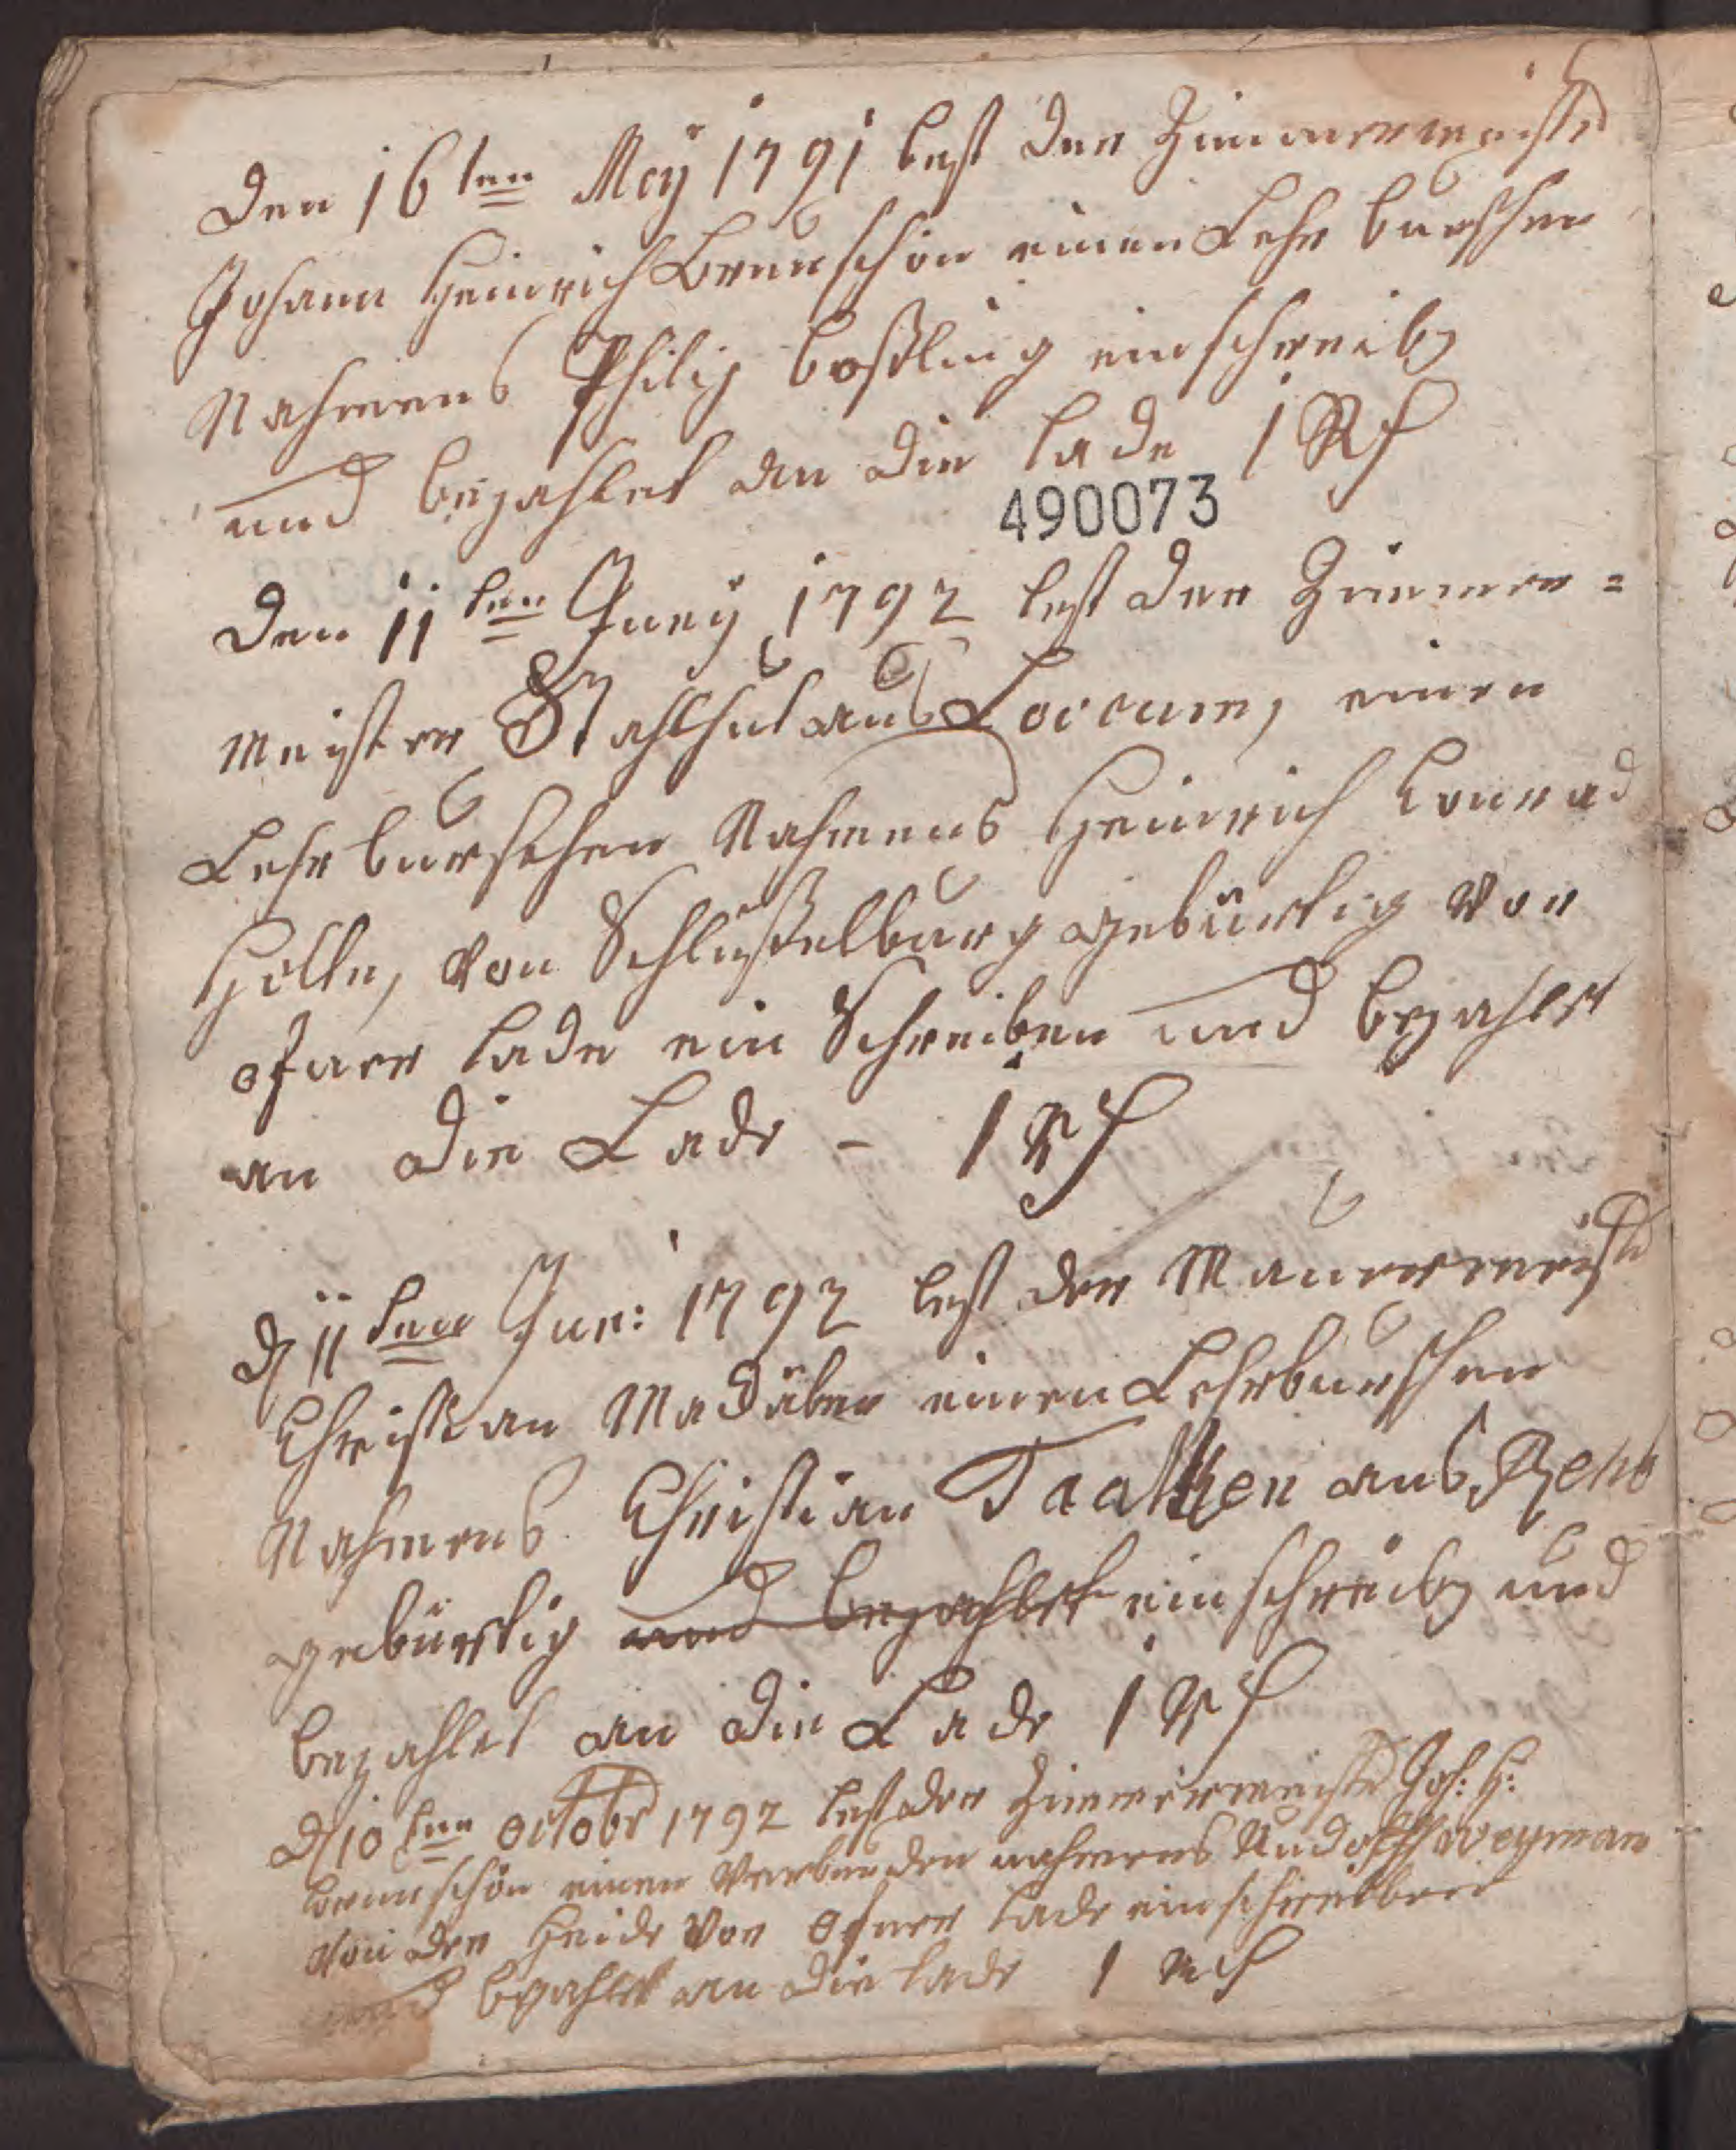 Den 16ten Meÿ 1791 lest der Zimmermeister
Johann Heinrich Brunschön einen Lehr burschen
Nahmens Philip Boßling einschreiben
und bezahlet an die lade 1 Rf
490073
Den 11ten Juny 1792 lest der Zimmer=
Meister Stahlhut aus Loccum, einen
Lehr burschen Nahmens Heinrich Conrad
Hölle, von Schlüßelburg gebürtig vor
ofner lade ein Schreiben und bezahlet
an die Lade - 1 Rf
D 11ten Jun: 1792 lest der Maurermeister
Christian Madäber einen Lehrburschen
Nahmens Christian Taatken aus
gebürtig und bezahlet einschreiben und
bezahlet an die Lade 1 Rf
D 10ten octobr 1792 lest der Zimmermeister Joh: H:
Brunschön einen nahmens Rudolph Weyman
von der Heide vor ofner lade einschreiben
und bezahlet an die lade 1 Rf